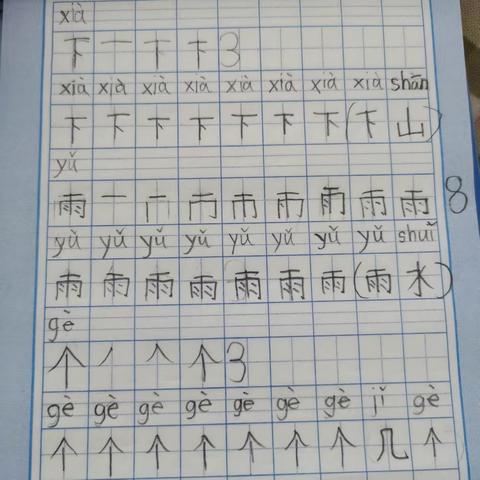 xià
下 一 丅 下 3
xià xià xià xià xià xià xià xià shān
下 下 下 下 下 下 下 (下 山)
yǔ
雨 一 雨 雨 8
yǔ yǔ yǔ yǔ yǔ yǔ yǔ yǔ shuǐ
雨 雨 雨 雨 雨 雨 雨 (雨 水)
gè
个 丿 人 个 3
gè gè gè gè gè gè gè jǐ gè
个 个 个 个 个 个 个 几 个